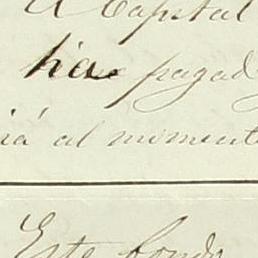 el Capital
ha pagad
iá al momento
Este fondo